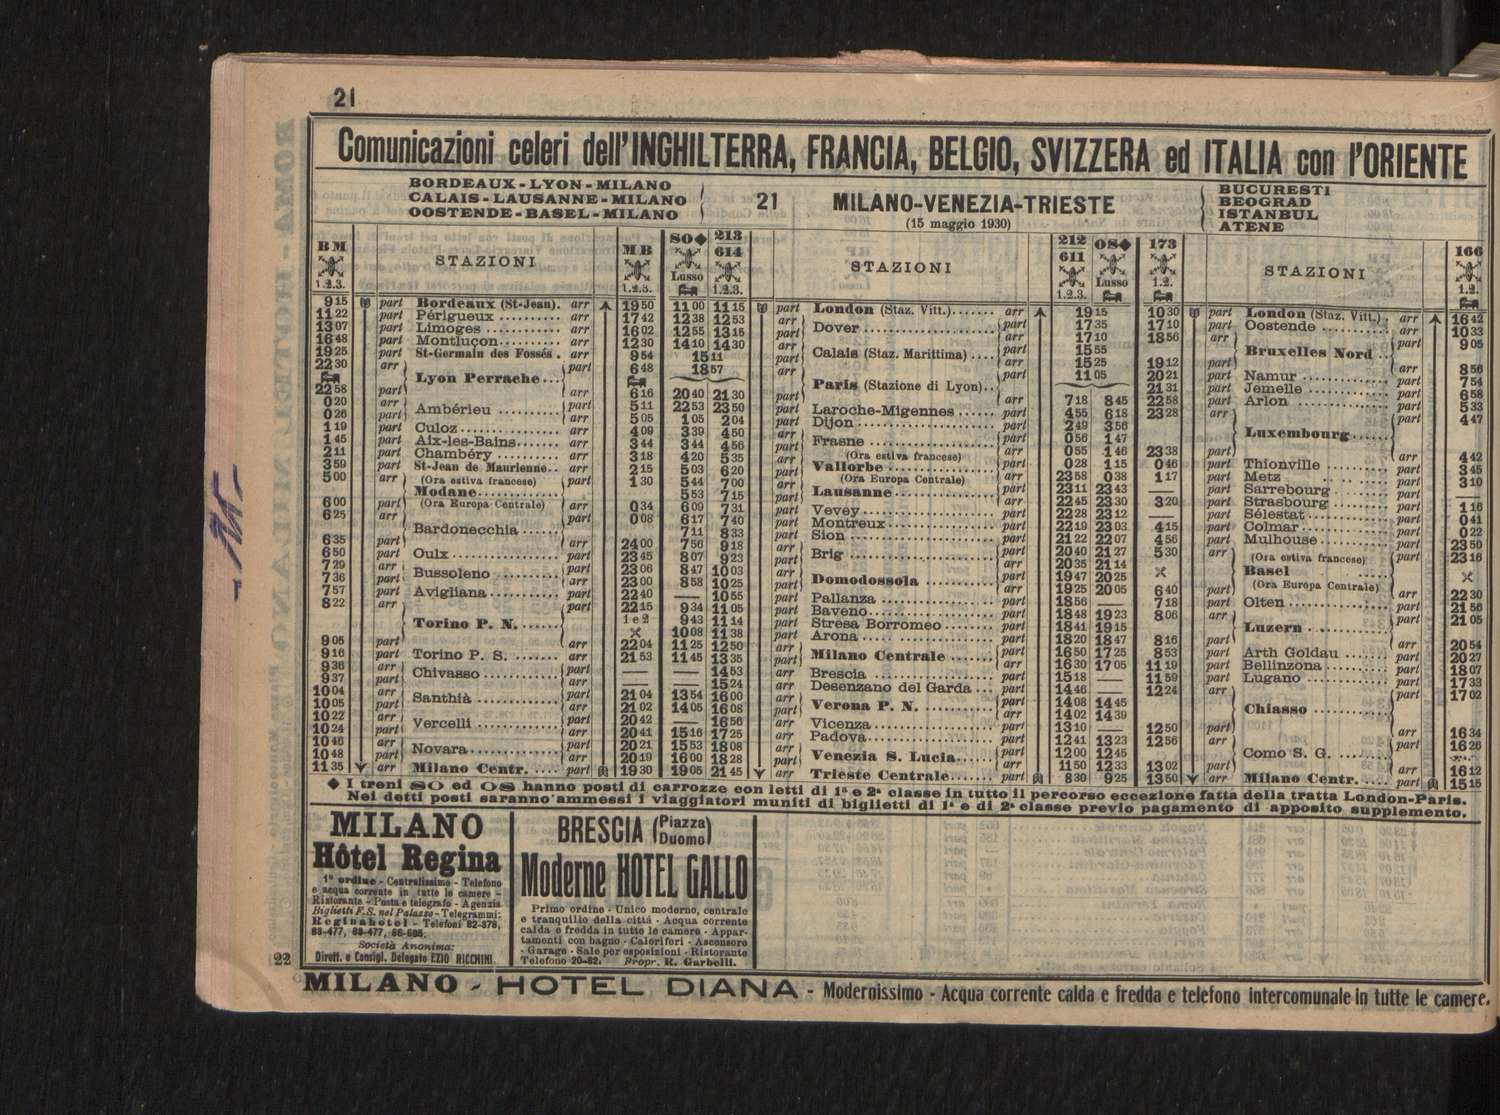 21
Comunicazioni celeri dell'INGHILTERRA, FRANCIA, BELGIO, SVIZZERA ed ITALIA con l'ORIENTE
BORDEAUX-LYON-MILANO
CALAIS-LAUSANNE-MILANO
OOSTENDE-BASEL-MILANO
21
MILANO-VENEZIA-TRIESTE
(15 maggio 1930)
BUCURESTI
BEOGRAD
ISTANBUL
ATENE
BM
1.2.3.
STAZIONI
MB
1.2.3.
SO◆
Lusso
213
614
1.2.3.
9 15 part Bordeaux (St-Jean). arr 19 50 11 00 11 15
11 22 part Périgueux arr 17 42 12 38 12 53
13 07 part Limoges arr 16 02 12 55 13 15
16 48 part Montluçon arr 12 30 14 10 14 30
19 25 part St-Germain des Fossés . arr 9 54 15 11
22 30 arr Lyon Perrache part 6 48 18 57
22 58 part arr 6 16 20 40 21 30
0 20 arr Ambérieu part 5 11 22 53 23 50
0 26 part arr 5 05 1 05 2 04
1 19 part Culoz arr 4 09 3 39 4 50
1 45 part Aix-les-Bains arr 3 44 3 44 4 56
2 11 part Chambéry arr 3 18 4 20 5 35
3 59 part St-Jean de Maurienne arr 2 15 5 03 6 20
5 00 arr (Ora estiva francese) part 1 30 5 44 7 00
Modane 5 53 7 15
6 00 part (Ora Europa Centrale) arr 0 34 6 09 7 31
6 25 arr Bardonecchia part 0 08 6 17 7 40
7 11 8 33
6 35 part arr 24 00 7 56 9 18
6 50 part Oulx part 23 45 8 07 9 23
7 29 arr Bussoleno part 23 06 8 47 10 03
7 36 part arr 23 00 8 58 10 25
7 57 part Avigliana part 22 40 — 10 55
8 22 arr Torino P. N. part 22 15 9 34 11 05
1 e 2 9 43 11 14
10 08 11 38
9 05 part arr 22 04 11 25 12 50
9 16 part Torino P. S. arr 21 53 11 45 13 35
9 36 arr Chivasso part — — 14 53
9 37 part arr — — 15 24
10 04 arr Santhià part 21 04 13 54 16 00
10 05 part arr 21 02 14 05 16 08
10 22 arr Vercelli part 20 42 — 16 56
10 24 part arr 20 41 15 16 17 25
10 46 arr Novara part 20 21 15 53 18 08
10 48 part arr 20 19 16 00 18 28
11 35 arr Milano Centr. part 19 30 19 05 21 45
STAZIONI
212
611
1.2.3.
OS◆
Lusso
173
1.2.
part London (Staz. Vitt.) arr 19 15 10 30
arr Dover part 17 35 17 10
part arr 17 10 18 56
arr Calais (Staz. Marittima) part 15 55
part arr 15 25 19 12
arr Paris (Stazione di Lyon) part 11 05 20 21
21 31
part arr 7 18 8 45 22 58
part Laroche-Migennes part 4 55 6 18 23 28
part Dijon arr 2 49 3 56
arr Frasne part 0 56 1 47
part arr 0 55 1 46 23 38
arr (Ora estiva francese) part 0 28 1 15 0 46
Vallorbe
part (Ora Europa Centrale) arr 23 58 0 38 1 17
arr Lausanne part 23 11 23 43 —
part arr 22 45 23 30 3 20
part Vevey arr 22 28 23 12 —
part Montreux arr 22 19 23 03 4 15
part Sion arr 21 22 22 07 4 56
arr Brig part 20 40 21 27 5 30
part arr 20 35 21 14
arr Domodossola part 19 47 20 25
part arr 19 25 20 05 6 40
part Pallanza part 18 56 — 7 18
part Baveno part 18 48 19 23 8 06
part Stresa Borromeo part 18 41 19 15
part Arona arr 18 20 18 47 8 16
arr Milano Centrale part 16 50 17 25 8 53
part arr 16 30 17 05 11 19
arr Brescia part 15 18 — 11 59
arr Desenzano del Garda part 14 46 — 12 24
arr Verona P. N. part 14 08 14 45
part arr 14 02 14 39
arr Vicenza part 13 10 — 12 50
arr Padova part 12 41 13 23 12 56
arr Venezia S. Lucia part 12 00 12 45
part arr 11 50 12 33 13 02
arr Trieste Centrale part 8 30 9 25 13 50
STAZIONI
166
1.2.
part London (Staz. Vitt.) arr 16 42
part Oostende part 10 33
arr Bruxelles Nord part 9 05
part arr 8 56
part Namur arr 7 54
part Jemelle arr 6 58
part Arlon arr 5 33
arr Luxembourg part 4 47
part arr 4 42
part Thionville arr 3 45
part Metz arr 3 10
part Sarrebourg arr —
part Strasbourg arr 1 16
part Sélestat arr 0 41
part Colmar arr 0 22
part Mulhouse arr 23 50
arr (Ora estiva francese) part 23 16
Basel
part (Ora Europa Centrale) arr 22 30
part Olten arr 21 56
arr Luzern part 21 05
part arr 20 54
part Arth Goldau part 20 27
part Bellinzona part 18 07
part Lugano part 17 33
arr Chiasso part 17 02
part arr 16 34
arr Como S. G. part 16 26
part arr 16 12
arr Milano Centr. part 15 15
◆ I treni SO ed OS hanno posti di carrozze con letti di 1ª e 2ª classe in tutto il percorso eccezione fatta della tratta London-Paris.
Nei detti posti saranno ammessi i viaggiatori muniti di biglietti di 1ª e di 2ª classe previo pagamento di apposito supplemento.
MILANO
Hôtel Regina
1º ordine - Centralissimo - Telefono
e acqua corrente in tutte le camere -
Ristorante - Posta e telegrafo - Agenzia
Biglietti F.S. nel Palazzo - Telegrammi:
Reginahotel - Telefoni 82-378,
83-477, 88-477, 86-685.
Società Anonima:
Dirett. e Consigl. Delegato EZIO RICCHINI.
BRESCIA (Piazza Duomo)
Moderne HOTEL GALLO
Primo ordine - Unico moderno, centrale
e tranquillo della città - Acqua corrente
calda e fredda in tutte le camere - Appar-
tamenti con bagno - Caloriferi - Ascensore
- Garage - Sale per esposizioni - Ristorante
Telefono 20-62. Propr. R. Garbelli.
22
MILANO - HOTEL DIANA - Modernissimo - Acqua corrente calda e fredda e telefono intercomunale in tutte le camere.